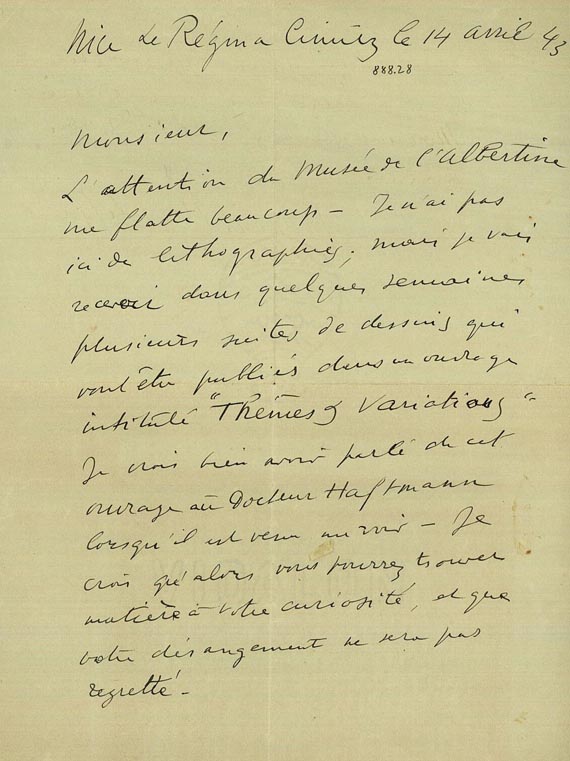 Nice Le Régina Cimiez le 14 avril 43
888.28
Monsieur,
L'attention du Musée de l'Albertine
me flatte beaucoup – Je n'ai pas
ici de lithographies, mais je vais
recevoir dans quelques semaines
plusieurs suites de dessins qui
vont être publiés dans un ouvrage
intitulé "Thêmes & Variations"
Je crois bien avoir parlé de cet
ouvrage au Docteur Haftmann
lorsqu'il est venu me voir – Je
crois qu'alors vous pourrez trouver
matière à votre curiosité, et que
votre dérangement ne sera pas
regretté –